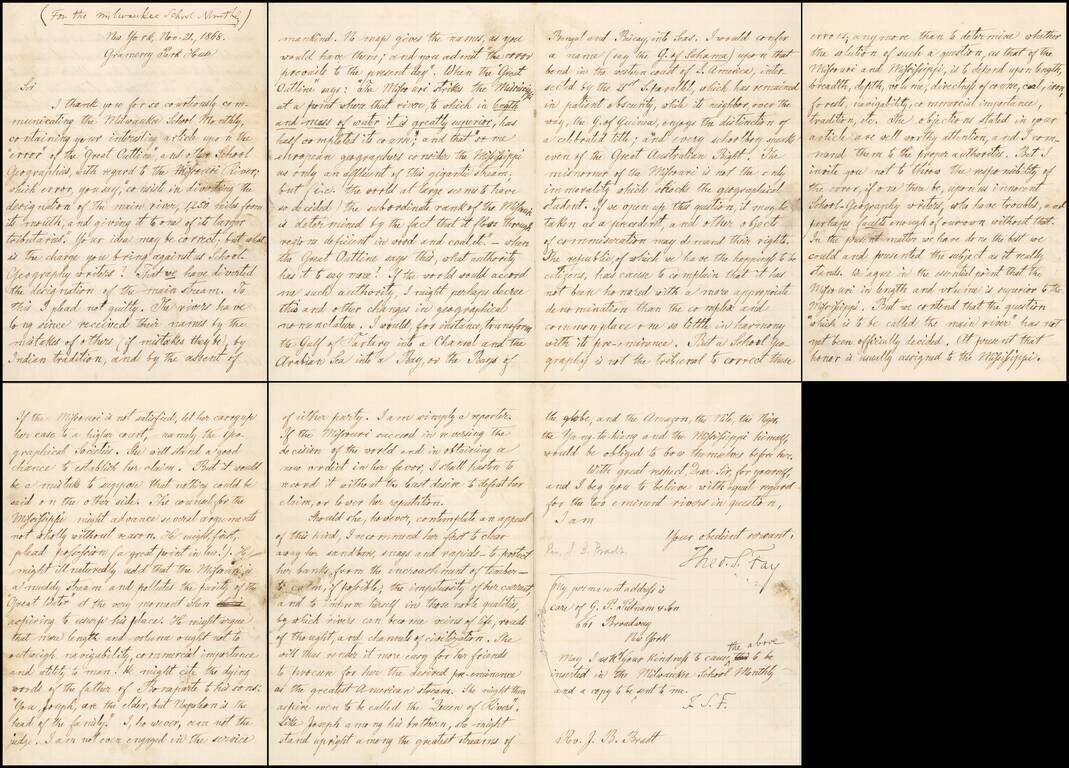 (For the Milwaukee School Monthly)
New York, Nov. 21, 1868.
Gramercy Park House
Sir
I thank you for so courteously com-
municating the Milwaukee School Monthly,
containing your interesting article upon the
"error of the Great Outline" and other School
Geographies, with regard to the Missouri River;
which error, you say, consists in diverting the
designation of the main river, 1250 miles from
its mouth, and giving it to one of its larger
tributaries. Your idea may be correct; but what
is the charge you bring against us School
Geography writers? That we have diverted
the designation of the main stream. To
this I plead not guilty. The rivers have
long since received their names by the
mistakes of others (if mistakes they be), by
Indian tradition, and by the assent of
mankind. No map gives the names, as you
would have them; and you admit "the error
prevails to the present day". When the "Great
Outline" says: "The Missouri strikes the Mississippi
at a point where that river, to which in length
and mass of water it is greatly superior, has
half completed its course"; and that "some
European geographers consider the Mississippi
as only an affluent of this gigantic stream;
but (i.e. the world at large seems to have
so decided) the subordinate rank of the Missouri
is determined by the fact that it flows through
regions deficient in wood and coal &c. – when
the Great Outline says this, what authority
has it to say more? If the world would accord
me such authority, I might perhaps decree
this and other changes in geographical
nomenclature. I would, for instance, transform
the Gulf of Tartary into a Channel and the
Arabian Sea into a Bay, or the Bays of
Bengal and Biscay, into Seas. I would confer
a name (say the G. of Sahama) upon that
bend in the western coast of S. America, inter
sected by the 21st S. parallel, which has remained
in patient obscurity, while its neighbor, over the
way, the G. of Guinea, enjoys the distinction of
a celebrated title; and every schoolboy speaks
even of the Great Australian Bight. The
misnomer of the Missouri is not the only
immorality which shocks the geographical
student. If we open up this question, it may be
taken as a precedent, and other objects
of commiseration may demand their rights.
The republic, of which we have the happiness to be
citizens, has cause to complain that it has
not been honored with a more appropriate
denomination than the complex and
commonplace one so little in harmony
with its pre-eminence. But a School Geo-
graphy is not the tribunal to correct these
errors, any more than to determine whether
the solution of such a question, as that of the
Missouri and Mississippi, is to depend upon length,
breadth, depth, volume, directness of course, coal, iron,
forests, navigability, commercial importance,
tradition, etc. The objections stated in your
article are well worthy attention, and I com-
mend them to the proper authorities. But I
invite you not to throw the responsibility of
the error, if one there be, upon us innocent
School-Geography writers, who have troubles, and
perhaps faults enough of our own without that.
In the present matter we have done the best we
could and presented the subject as it really
stands. We agree in the essential point that the
Missouri in length and volume is superior to the
Mississippi. But we contend that the question
"which is to be called the main river" has not
yet been officially decided. At present that
honor is usually assigned to the Mississippi.
If the Missouri is not satisfied, let her carry up
her case to a higher court, – namely the Geo-
graphical Societies. She will stand a good
chance to establish her claim. But it would
be a mistake to suppose that nothing could be
said on the other side. The counsel for the
Mississippi might advance several arguments
not wholly without reason. He might, first,
plead possession (a great point in law!). He
might ill naturedly add that the Missouri is
a muddy stream and pollutes the purity of the
"Great Water" at the very moment when
aspiring to usurp his place. He might argue
that mere length and volume ought not to
outweigh navigability, commercial importance
and utility to man. He might cite the dying
words of the father of Bonaparte to his sons:
"You, Joseph, are the elder, but Napoleon is the
head of the family." I, however, am not the
judge. I am not even engaged in the service
of either party. I am simply a reporter.
If the Missouri succeed in reversing the
decision of the world and in obtaining a
new verdict in her favor, I shall hasten to
record it without the least desire to defeat her
claim, or lower her reputation.
Should she, however, contemplate an appeal
of this kind, I recommend her first to clear
away her sandbars, snags and rapids – to protect
her banks from the encroachment of timber –
to calm, if possible, the impetuosity of her current,
and to improve herself in those noble qualities,
by which rivers can become veins of life, roads
of thought, and channels of civilization. She
will thus render it more easy for her friends
to procure for her the desired pre-eminence
as the greatest American stream. She might then
aspire even to be called the "Queen of Rivers".
Like Joseph among his brethren, she might
stand upright among the greatest streams of
the globe, and the Amazon, the Nile, the Niger,
the Yang-te-kiang and the Mississippi himself,
would be obliged to bow themselves before her.
With great respect, Dear Sir, for yourself,
and I beg you to believe with equal regard
for the two eminent rivers in question,
I am
Your obedient servant,
Theo. S. Fay
Rev. J. B. Pradt.
My permanent address is
care of G. P. Putnam & Son
661 Broadway
New York
May I ask of your kindness to cause the above to be
inserted in the Milwaukee School Monthly
and a copy to be sent to me.
T. S. F.
Rev. J. B. Pradt